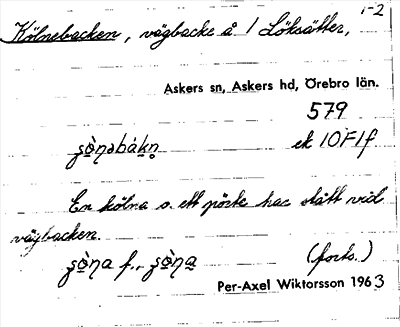 1-2
Kölnebacken, vägbacke å 1 Löksätter,
Askers sn, Askers hd, Örebro län.
579
ek 10F1f
En kölna o. ett pörte har stått vid
vägbacken.
(forts.)
Per-Axel Wiktorsson 1963